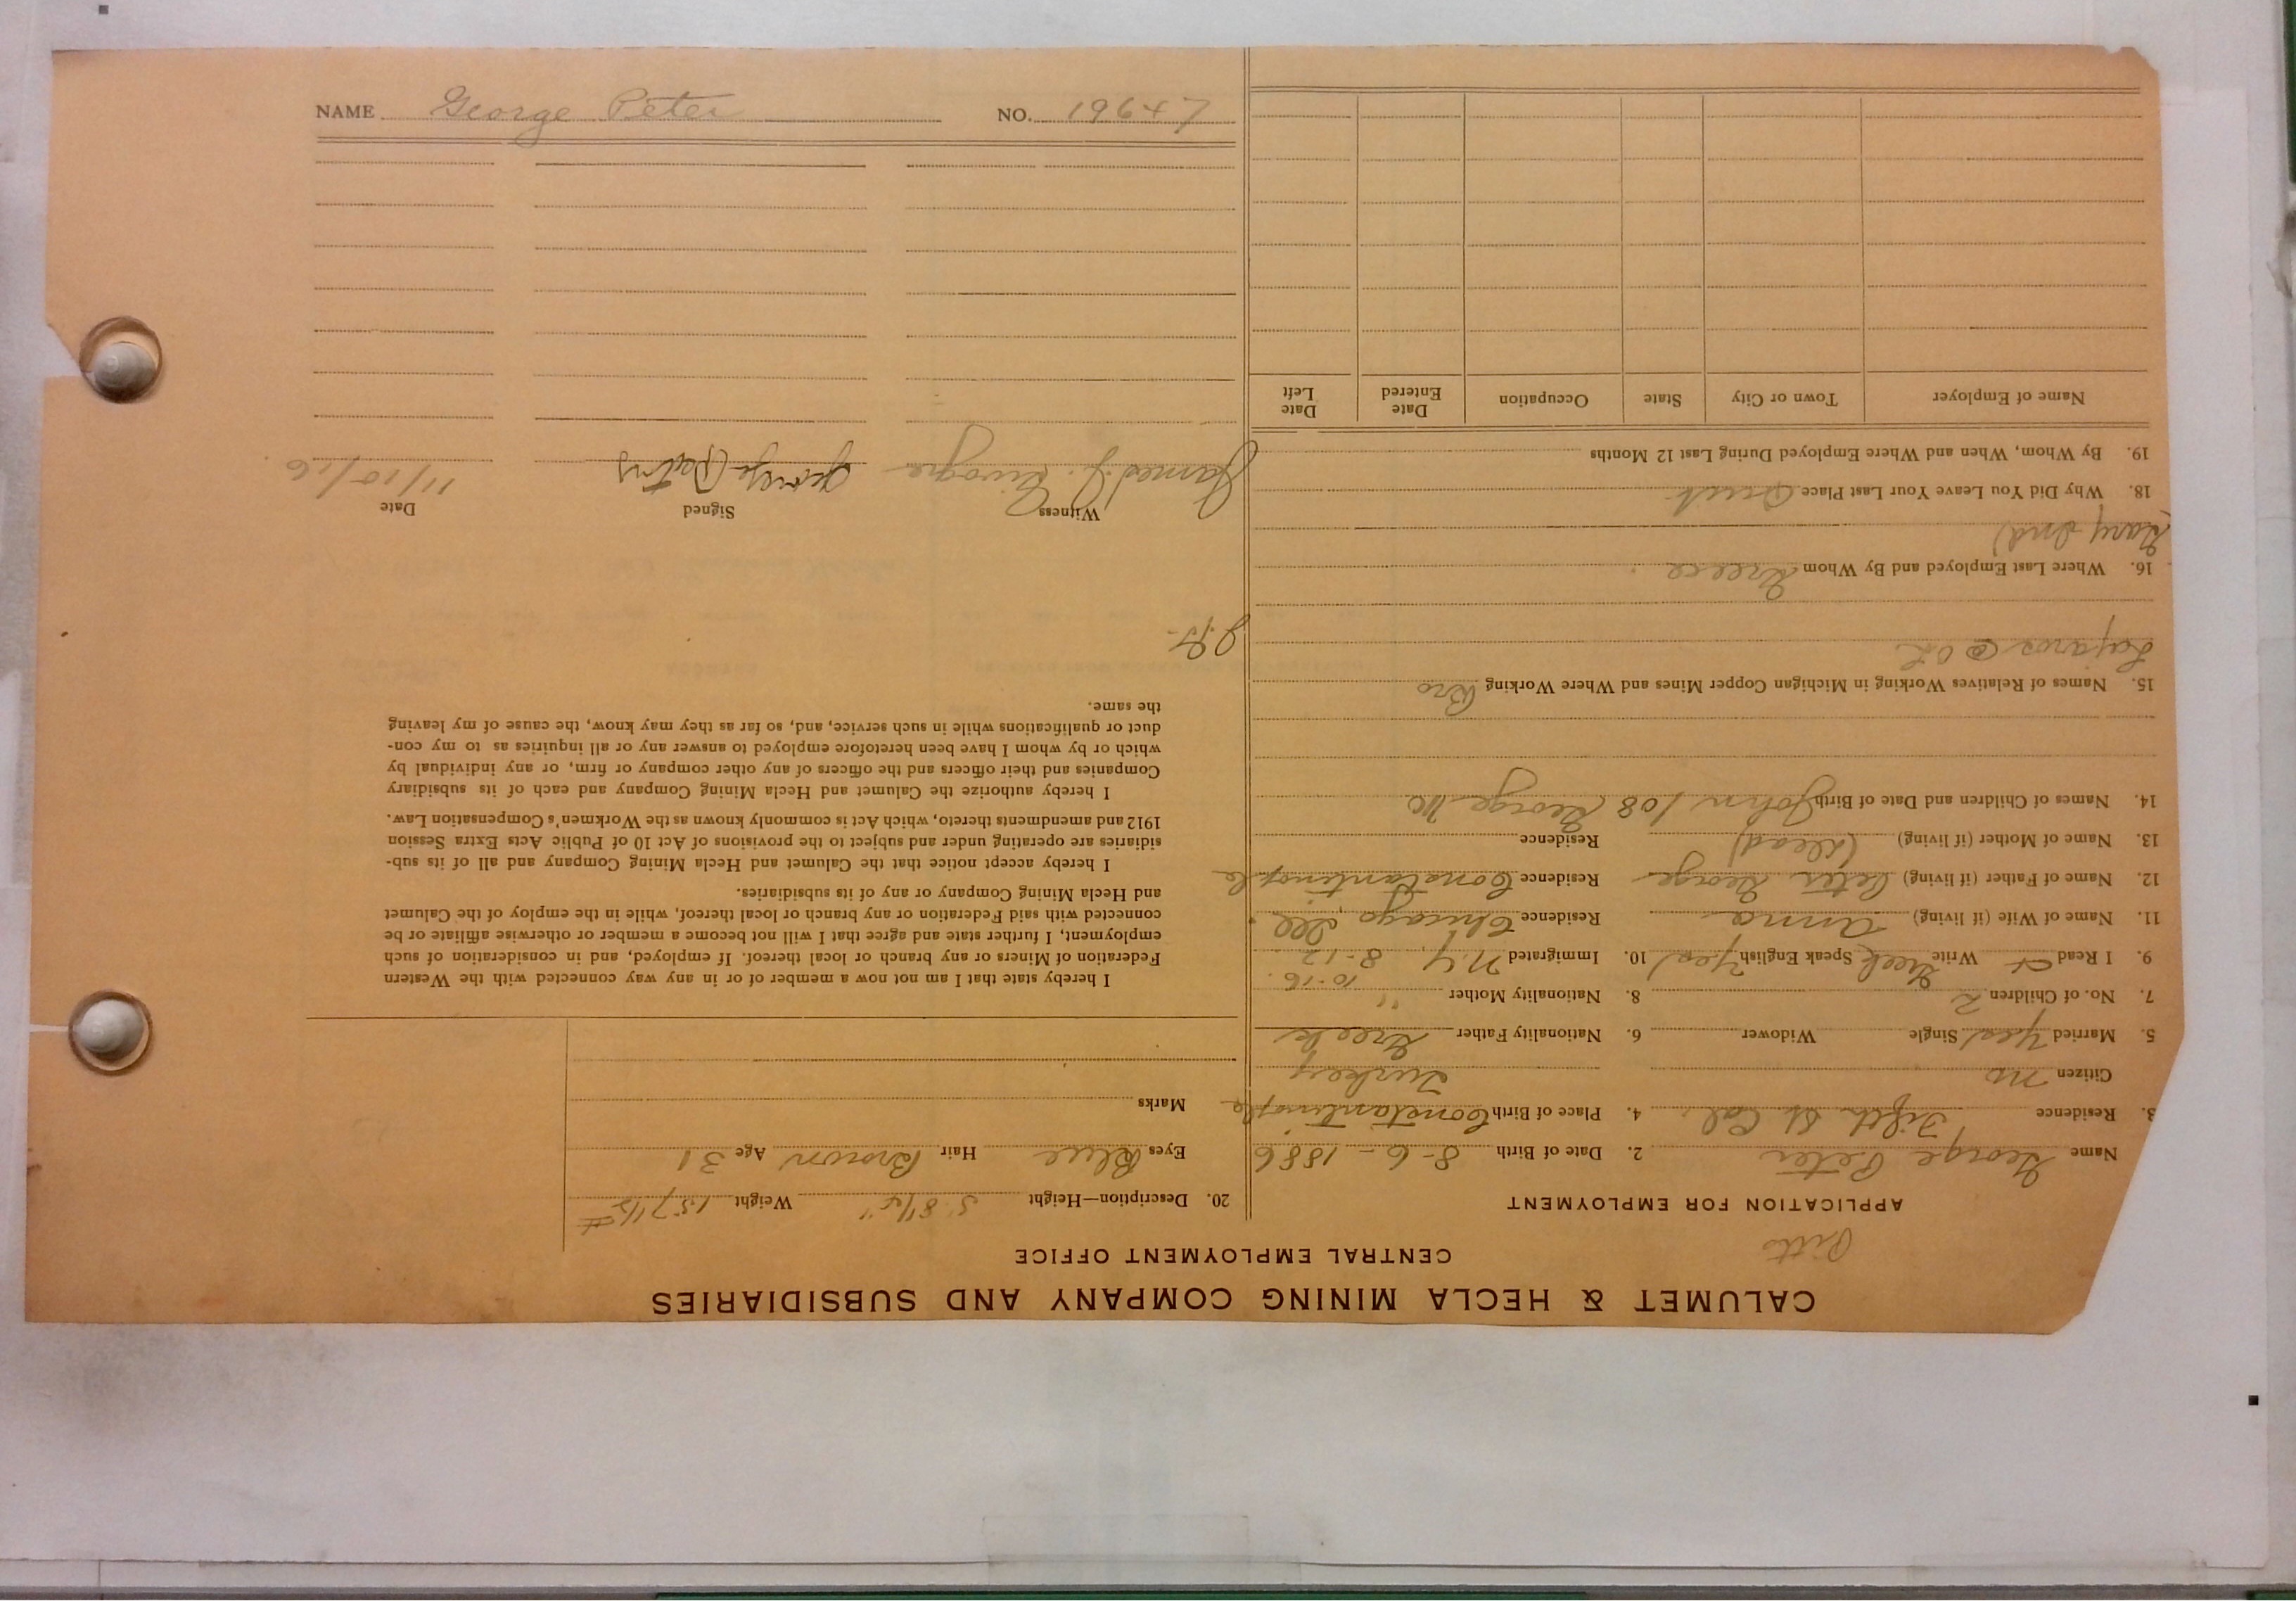 CALUMET & HECLA MINING COMPANY AND SUBSIDIARIES
CENTRAL EMPLOYMENT OFFICE
APPLICATION FOR EMPLOYMENT
Name George Peter 2. Date of Birth 8-6-1886
3. Residence Fifth St Cal. 4. Place of Birth Constantinople
Citizen No Turkey
5. Married Yes Single Widower 6. Nationality Father Greek
7. No. of Children 2 8. Nationality Mother "
10-16
9. I Read & Write Greek Speak English Yes 10. Immigrated N.Y. 8-12
11. Name of Wife (if living) Anna Residence Chicago, Ill.
12. Name of Father (if living) Peter George Residence Constantinople
13. Name of Mother (if living) (dead) Residence
14. Names of Children and Date of Birth John / 08 George
15. Names of Relatives Working in Michigan Copper Mines and Where Working Bro
16. Where Last Employed and By Whom Greece
Gary Ind
18. Why Did You Leave Your Last Place Quit
19. By Whom, When and Where Employed During Last 12 Months
Name of Employer Town or City State Occupation Date Entered Date Left
20. Description—Height 5' 8 1/2" Weight 157 1/2 #
Eyes Blue Hair Brown Age 31
Marks
I hereby state that I am not now a member of or in any way connected with the Western
Federation of Miners or any branch or local thereof. If employed, and in consideration of such
employment, I further state and agree that I will not become a member or otherwise affiliate or be
connected with said Federation or any branch or local thereof, while in the employ of the Calumet
and Hecla Mining Company or any of its subsidiaries.
I hereby accept notice that the Calumet and Hecla Mining Company and all of its sub-
sidiaries are operating under and subject to the provisions of Act 10 of Public Acts Extra Session
1912 and amendments thereto, which Act is commonly known as the Workmen's Compensation Law.
I hereby authorize the Calumet and Hecla Mining Company and each of its subsidiary
Companies and their officers and the officers of any other company or firm, or any individual by
which or by whom I have been heretofore employed to answer any or all inquiries as to my con-
duct or qualifications while in such service, and, so far as they may know, the cause of my leaving
the same.
Witness Signed Date
James J. George 11/10/16
NAME George Peter NO. 19647